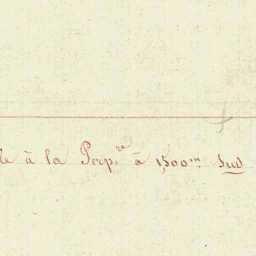 le à la Perp.re à 1,500m Sud